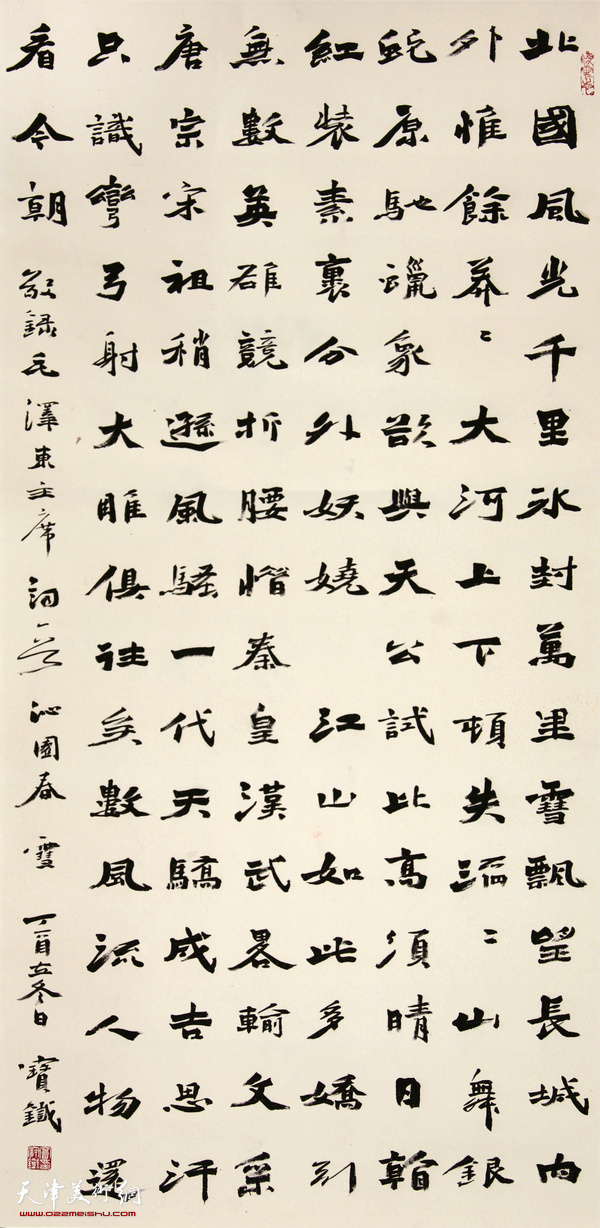 北國風光千里冰封萬里雪飄望長城内
外惟餘莽〻大河上下頓失滔〻山舞銀
蛇原馳蠟象欲與天公試比高須晴日看
紅裝素裹分外妖嬈 江山如此多嬌引
無數英雄競折腰惜秦皇漢武畧輸文采
唐宗宋祖稍遜風騷一代天驕成吉思汗
只識彎弓射大雕俱往矣數風流人物還
看今朝 敬録毛澤東主席詞一首 沁園春 雪 丁酉立冬日 寶鐵
天津美术网
www.022meishu.com